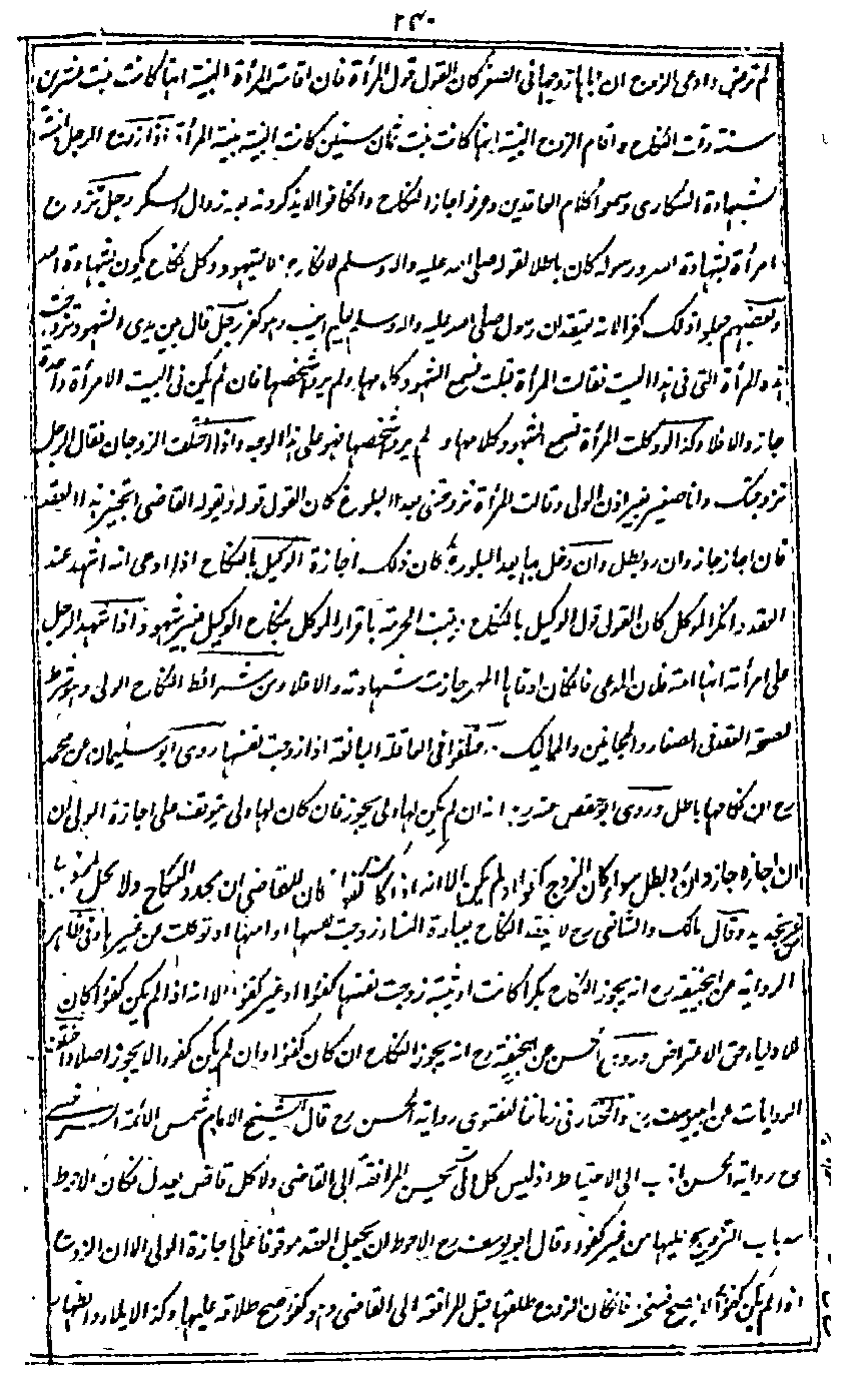 ٢٤٠
لم ترض وادعى الزوج ان اباها زوجها فى الصغر كان القول قول المرأة فان اقامت المرأة البينة انها كانت بنت عشرين
سنة وقت النكاح واقام الزوج البينة انها كانت بنت ثمان سنين كانت البينة بينة المرأة اذا تزوج الرجل امرأة
بشهادة السكارى وسمعوا كلام العاقدين وعرفوا جاز النكاح وان كانوا لا يذكرونه بعد زوال السكر رجل تزوج
امرأة بشهادة الله ورسوله كان باطلا لقوله صلى الله عليه واله وسلم لا نكاح الا بشهود وكل نكاح يكون بشهادة الله
وبعضهم جعلوا ذلك كفرا لانه يعتقد ان رسول صلى الله عليه واله وسلم يعلم الغيب وهو كفر رجل قال بين يدى الشهود تزوجت
هذه المرأة التى فى هذا البيت فقالت المرأة قبلت فسمع الشهود كلامها ولم يروا شخصها فان لم يكن فى البيت الا امرأة واحدة
جاز والا فلا وكذا لو وكلت المرأة فسمع الشهود كلامها و لم يروا شخصها فهو على هذا الوجه واذا اختلف الزوجان فقال الرجل
تزوجتك وانا صغير بغير اذن الولى وقالت المرأة تزوجتنى بعد البلوغ كان القول قوله ويقول له القاضى اتجيز هذا العقد
فان اجاز جاز وان رد بطل وان دخل بها بعد البلوغ كان ذلك اجازة الوكيل بالنكاح اذا ادعى انه اشهد عند
العقد وانكر الموكل كان القول قول الوكيل بالنكاح ويثبت الحرمة باقرار الموكل بنكاح الوكيل بغير شهود واذا شهد الرجل
على امرأته انها امة فلان المدعى فان كان اوفاها المهر جازت شهادته والا فلا ومن شرائط النكاح الولى وهو شرط
لصحة العقد فى الصغار والمجانين والمماليك واختلفوا فى العاقلة البالغة اذا زوجت نفسها روى ابو سليمان عن محمد
رح ان نكاحها باطل وروى ابو حفص عنه انه ان لم يكن لها ولى يجوز فان كان لها ولى يتوقف على اجازة الولى ان
ان اجازه جاز وان رد بطل سواء كان الزوج كفوا او لم يكن الا انه اذا كان كفوا كان للقاضى ان يجدد النكاح ولا يحل
تجديده وقال مالك والشافعى رح لا ينعقد النكاح بعبارة النساء زوجت نفسها او امتها او توكلت من غيرها وفى ظاهر
الرواية عن ابيحنيفة رح انه يجوز النكاح بكرا كانت او ثيبة زوجت نفسها كفوا او غير كفو الا انه اذا لم يكن كفوا كان
للاولياء حق الاعتراض وروى الحسن عن ابيحنيفة رح انه يجوز النكاح ان كان كفوا وان لم يكن كفوا لا يجوز اصلا واختلفت
الروايات عن ابيوسف رح والمختار فى زماننا للفتوى رواية الحسن رح قال الشيخ الامام شمس الائمة السرخسى
رح رواية الحسن اقرب الى الاحتياط اذ ليس كل ولى يحسن المرافعة الى القاضى ولا كل قاض يعدل فكان الاحوط
سد باب التزويج عليها من غير كفو وقال ابو يوسف رح الاحوط ان يجعل العقد موقوفا على اجازة الولى الا ان الزوج
اذا لم يكن كفوا لا يصح فسخه فان كان الزوج طلقها قبل المرافعة الى القاضى وهو كفو صح طلاقه عليها وكذا الايلاء والظهار